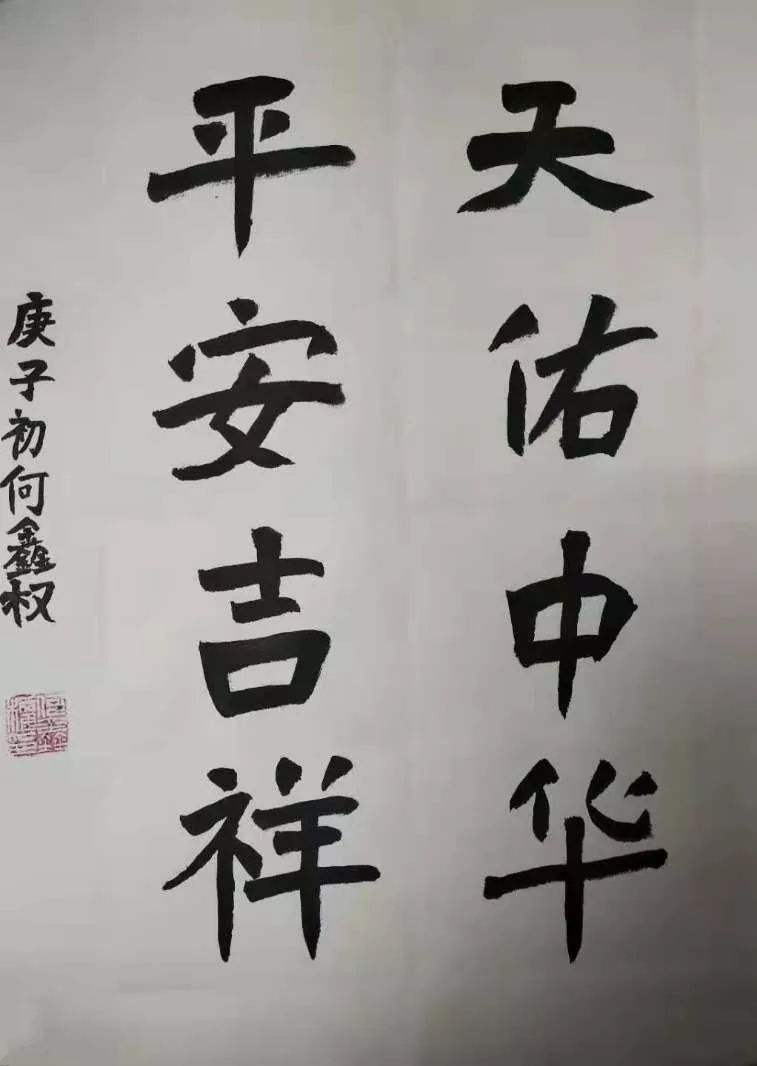 天佑中华
平安吉祥
庚子初何鑫权